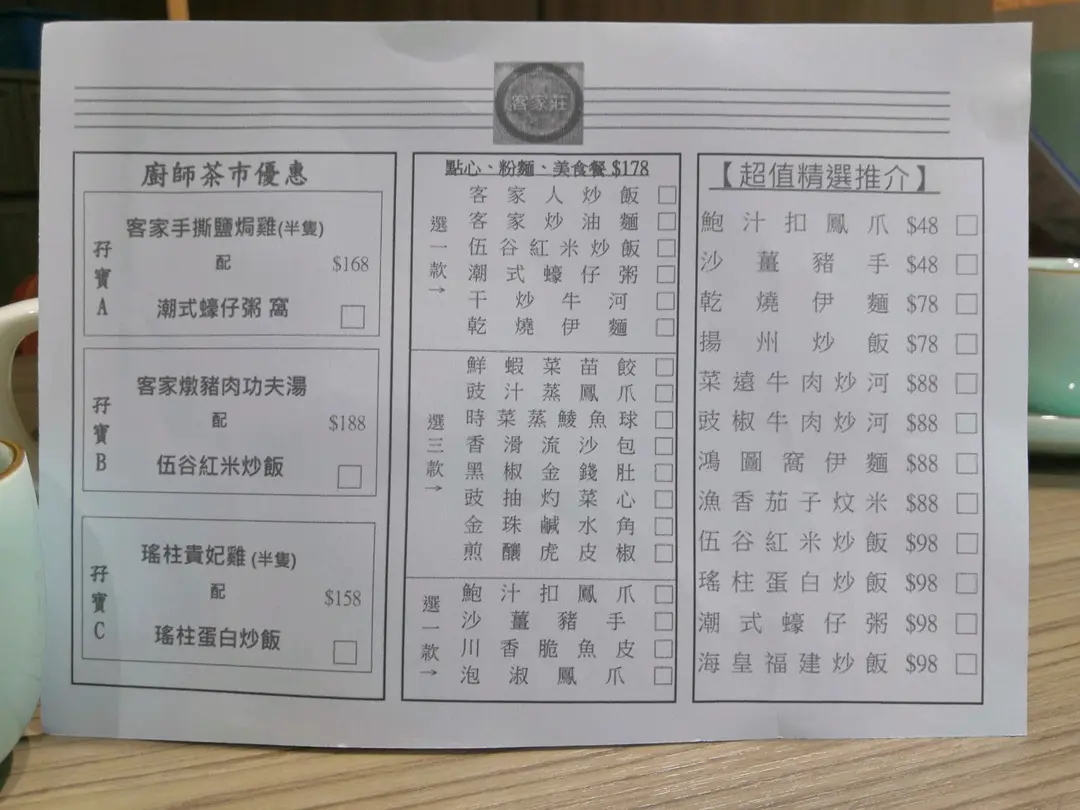 客家莊
廚師茶市優惠
孖寶A
客家手撕鹽焗雞(半隻)
配
$168
潮式蠔仔粥 窩
孖寶B
客家燉豬肉功夫湯
配
$188
伍谷紅米炒飯
孖寶C
瑤柱貴妃雞(半隻)
配
$158
瑤柱蛋白炒飯
點心、粉麵、美食餐 $178
選一款→
客家人炒飯
客家炒油麵
伍谷紅米炒飯
潮式蠔仔粥
干炒牛河
乾燒伊麵
選三款→
鮮蝦菜苗餃
豉汁蒸鳳爪
時菜蒸鯪魚球
香滑流沙包
黑椒金錢肚
豉抽灼菜心
金珠鹹水角
煎釀虎皮椒
選一款→
鮑汁扣鳳爪
沙薑豬手
川香脆魚皮
泡淑鳳爪
【超值精選推介】
鮑汁扣鳳爪 $48
沙薑豬手 $48
乾燒伊麵 $78
揚州炒飯 $78
菜遠牛肉炒河 $88
豉椒牛肉炒河 $88
鴻圖窩伊麵 $88
漁香茄子炆米 $88
伍谷紅米炒飯 $98
瑤柱蛋白炒飯 $98
潮式蠔仔粥 $98
海皇福建炒飯 $98